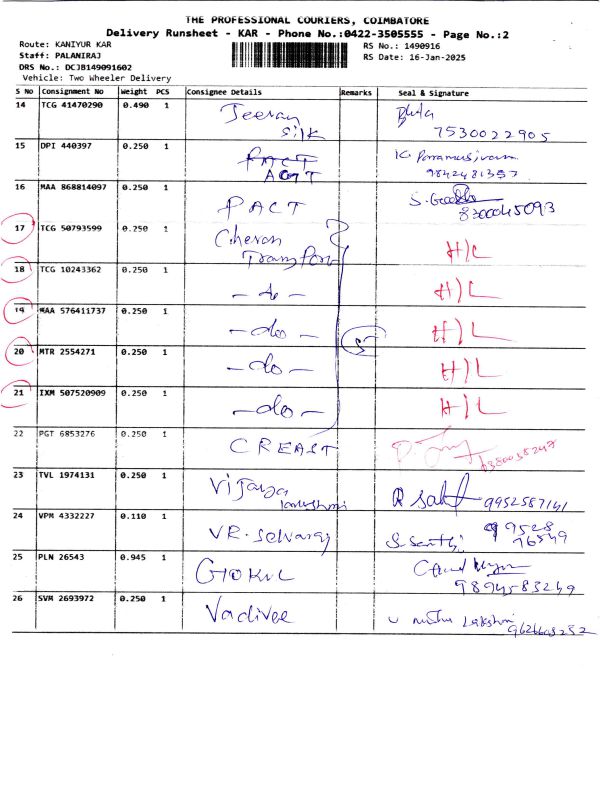 THE PROFESSIONAL COURIERS, COIMBATORE
Delivery Runsheet - KAR - Phone No.:0422-3505555 - Page No.:2
Route: KANIYUR KAR
RS No.: 1490916
Staff: PALANIRAJ
RS Date: 16-Jan-2025
DRS No.: DCJB149091602
Vehicle: Two Wheeler Delivery
S No Consignment No Weight PCS Consignee Details Remarks Seal & Signature
14 TCG 41470290 0.490 1 Jeeran
Silk 7530022905
15 DPI 440397 0.250 1 PACT K. Paramasivam
ACGT 9842481357
16 MAA 868814097 0.250 1 PACT 8300045093
17 TCG 50793599 0.250 1 Cheran H)L
Transport
18 TCG 10243362 0.250 1 - do - H)L
19 MAA 576411737 0.250 1 - do - H)L
20 MTR 2554271 0.250 1 - do - 5 H)L
21 IXM 507520909 0.250 1 - do - H)L
22 PGT 6853276 0.250 1 CREAST
23 TVL 1974131 0.250 1 Vijaya 9952587141
24 VPM 4332227 0.110 1 VR. Selvaraj S. Santhi 99528
76549
25 PLN 26543 0.945 1 GOKUL
9894583249
26 SVM 2693972 0.250 1 Vadivel Lakshmi